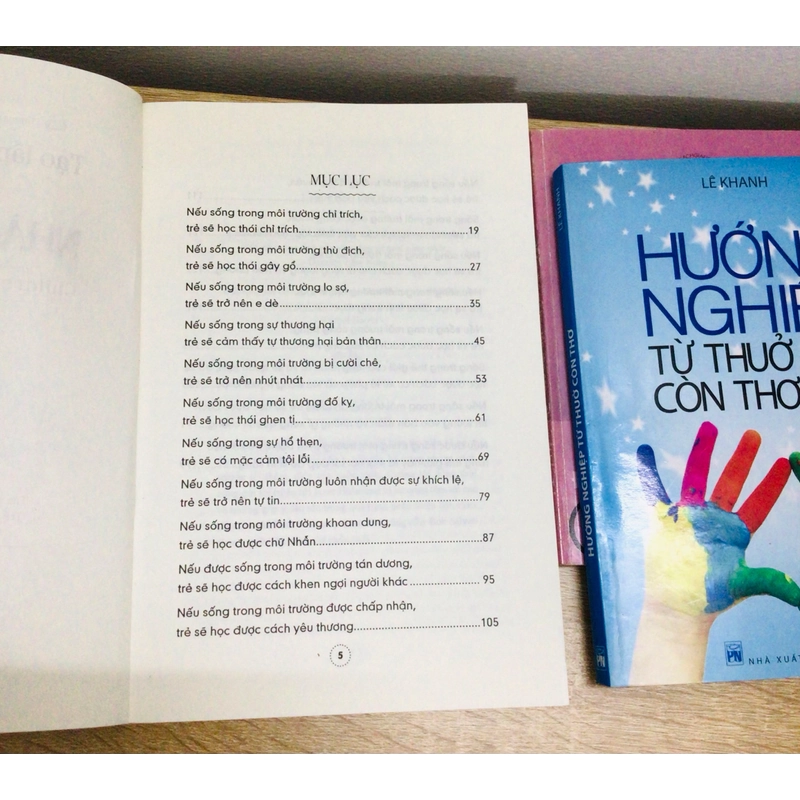 MỤC LỤC
Nếu sống trong môi trường chỉ trích,
trẻ sẽ học thói chỉ trích.................................................19
Nếu sống trong môi trường thù địch,
trẻ sẽ học thói gây gổ....................................................27
Nếu sống trong môi trường lo sợ,
trẻ sẽ trở nên e dè.........................................................35
Nếu sống trong sự thương hại
trẻ sẽ cảm thấy tự thương hại bản thân........................45
Nếu sống trong môi trường bị cười chê,
trẻ sẽ trở nên nhút nhát.................................................53
Nếu sống trong môi trường đố kỵ,
trẻ sẽ học thói ghen tị....................................................61
Nếu sống trong sự hổ thẹn,
trẻ sẽ có mặc cảm tội lỗi................................................69
Nếu sống trong môi trường luôn nhận được sự khích lệ,
trẻ sẽ trở nên tự tin.......................................................79
Nếu sống trong môi trường khoan dung,
trẻ sẽ học được chữ Nhẫn.............................................87
Nếu được sống trong môi trường tán dương,
trẻ sẽ học được cách khen ngợi người khác .................95
Nếu sống trong môi trường được chấp nhận,
trẻ sẽ học được cách yêu thương................................105
5
LÊ KHANH
TỪ THUỞ
CÒN THƠ
LÊ KHANH
HƯỚNG NGHIỆP TỪ THUỞ CÒN THƠ
PN
PN
NHÀ XUẤT